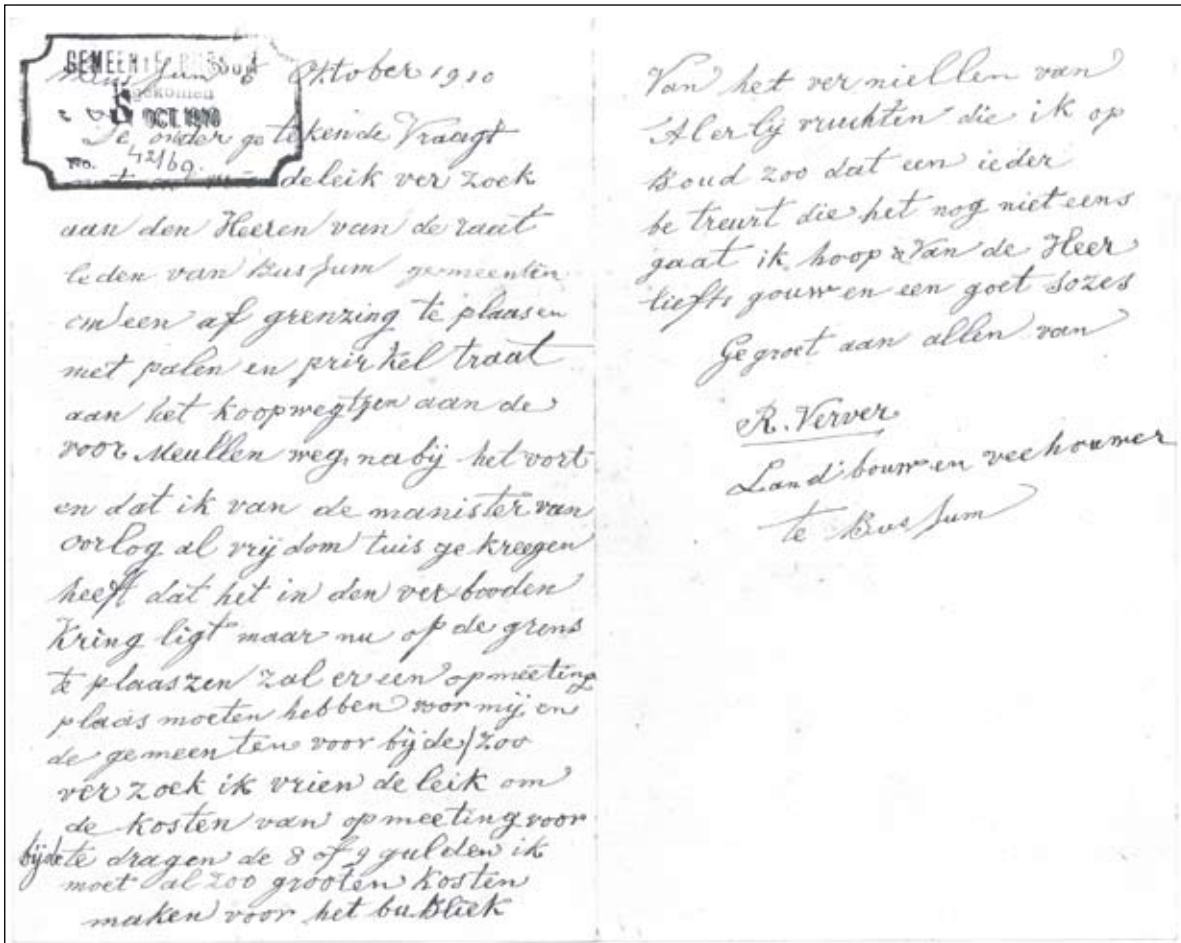 GEMEENTE BUSSUM
Ingekomen
8 OCT. 1910
No. 42/69.
Bussum 8 Oktober 1910
De onder getekende Vraagt
deleik ver zoek
aan den Heeren van de raat
leden van Bussum gemeenten
om een af grenzing te plaasen
met palen en prirkel traat
aan het koopwegtjen aan de
voor Meullen weg, nabij het vort
en dat ik van de manister van
oorlog al vrij dom tuis ge kreegen
heeft dat het in den ver booden
Kring ligt maar nu op de grens
te plaaszen zal er een opmeeting
plaas moeten hebben voor mij en
de gemeenten voor bijde / zoo
ver zoek ik vrien de leik om
de kosten van opmeeting voor
bijde te dragen de 8 of 9 gulden ik
moet al zoo grooten kosten
maken voor het bubliek
Van het ver niellen van
Alerlij vruchten die ik op
Boud zoo dat een ieder
be treurt die het nog niet eens
gaat ik hoop Van de Heer
liefts gouw en een goet sozes
Gegroet aan allen van
R. Verver
Land bouw en veehouwer
te Bussum